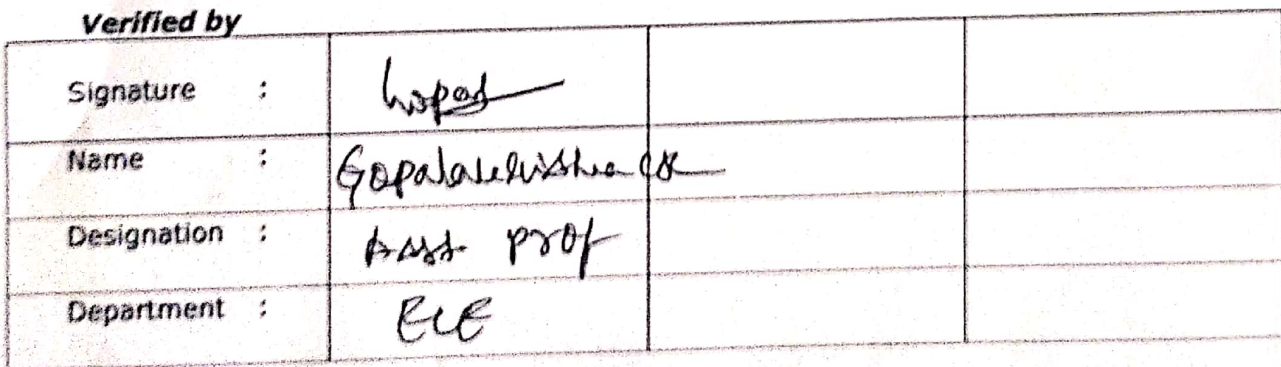 Verified by
Signature :
Name : Gopalakrishna
Designation : Asst Prof
Department : ECE